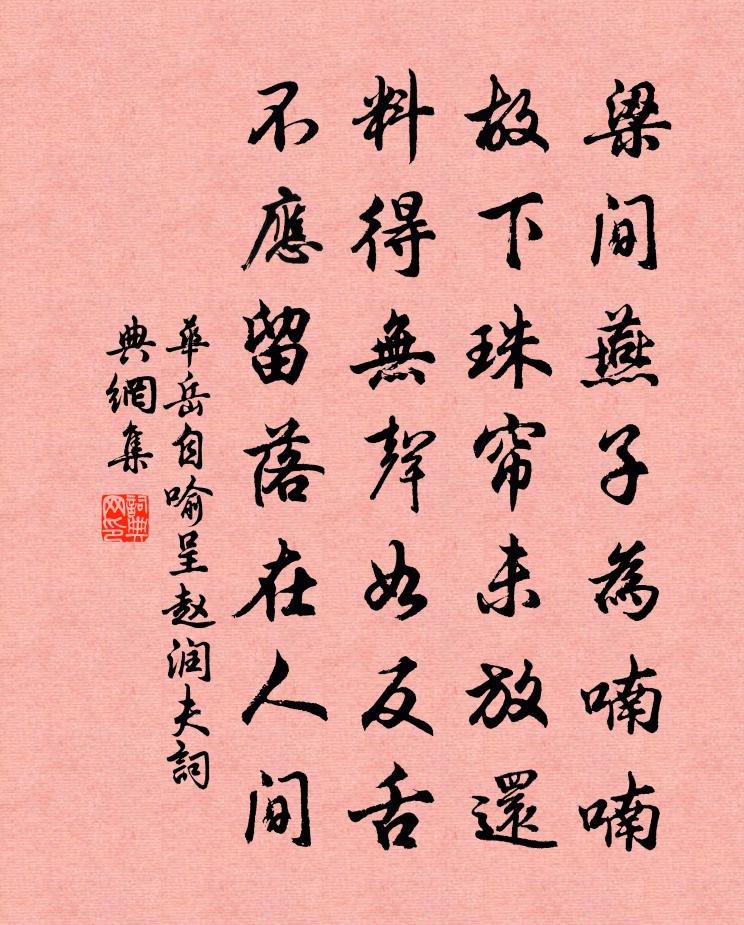 梁间燕子為喃喃
故下珠帘未放還
料得無聲如反舌
不應留落在人间
華岳自喻呈赵润夫詞
典網集
詞典网印